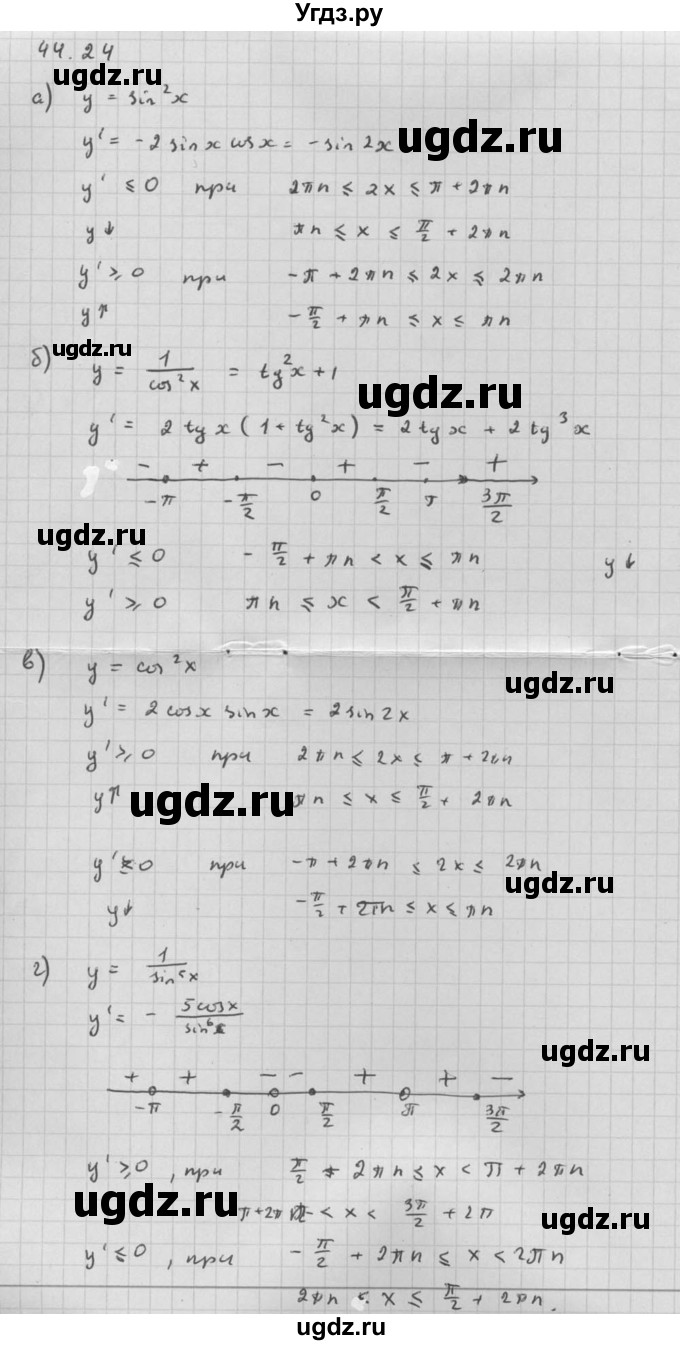 Угдз.ру
44.24
ugdz.ru
а) y = sin²x
y' = -2 sin x cos x = -sin 2x
ugdz.ru
y' ≤ 0 при 2πn ≤ 2x ≤ π + 2πn
y↓ πn ≤ x ≤ π/2 + 2πn
y' ≥ 0 при -π + 2πn ≤ 2x ≤ 2πn
y↑ -π/2 + πn ≤ x ≤ πn
ugdz.ru
б) y = 1/cos²x = tg²x + 1
ugdz.ru
y' = 2 tg x (1 + tg²x) = 2 tg x + 2 tg³x
- + - + - +
-π -π/2 0 π/2 π 3π/2
ugdz.ru
y' ≤ 0 -π/2 + πn < x ≤ πn y↓
y' ≥ 0 πn ≤ x < π/2 + πn
в) y = cos²x
ugdz.ru
y' = 2 cos x sin x = 2 sin 2x
y' ≥ 0 при 2πn ≤ 2x ≤ π + 2πn
y↑ πn ≤ x ≤ π/2 + 2πn
ugdz.ru
y' ≤ 0 при -π + 2πn ≤ 2x ≤ 2πn
ugdz.ru
y↓ -π/2 + 2πn ≤ x ≤ πn
г) y = 1/sin⁵x
y' = - 5cosx/sin⁶x
ugdz.ru
+ + - - + + -
-π -π/2 0 π/2 π 3π/2
y' ≥ 0, при π/2 + 2πn ≤ x < π + 2πn
ugdz.ru
π + 2πn < x < 3π/2 + 2π
ugdz.ru
y' ≤ 0, при -π/2 + 2πn ≤ x < 2πn
2πn < x ≤ π/2 + 2πn.
ugdz.ru